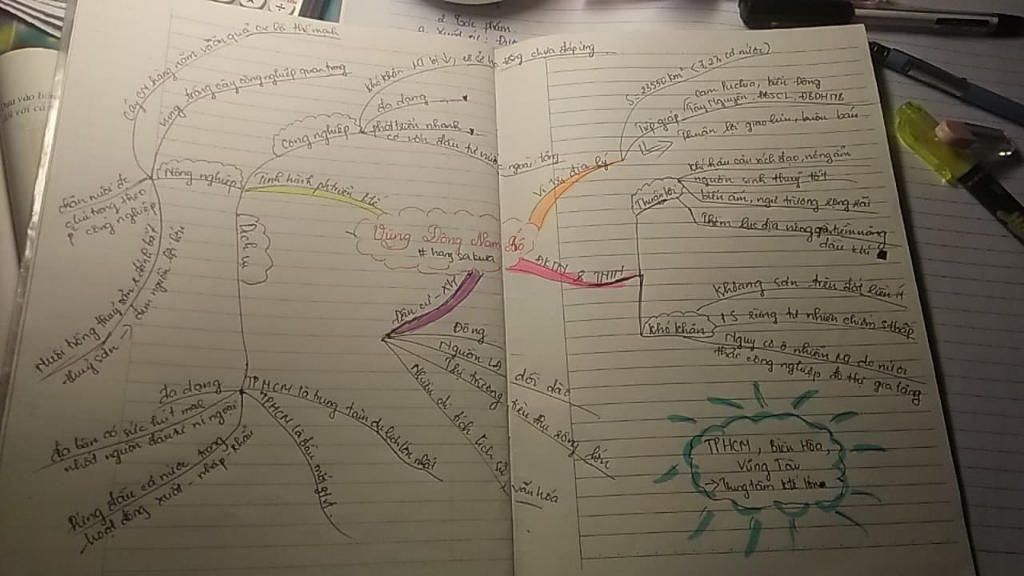 2. Tác phẩm
a. Xuất xứ:
Vùng Đông Nam Bộ
# hang sa kura
Vị trí địa lý
S: 23550 km² (7,27% cả nước)
Tiếp giáp
Cam Puchia, biển Đông
Tây Nguyên, ĐBSCL, DHNTB
Thuận lợi giao lưu, buôn bán
ĐKTN & TNTN
Thuận lợi
Khí hậu cận xích đạo, nóng ẩm
nguồn sinh thuỷ tốt
biển ấm, ngư trường rộng lớn
Thềm lục địa nông, giàu tiềm năng
dầu khí
Khó khăn
Khoáng sản trên đất liền ít
S rừng tự nhiên chiếm % thấp
Nguy cơ ô nhiễm do nước
thải công nghiệp, đô thị gia tăng
TPHCM, Biên Hòa,
Vũng Tàu
→ Trung tâm KT lớn
Dân cư - XH
Đông
Nguồn LĐ dồi dào
Thị trường tiêu thụ rộng lớn
Nhiều di tích lịch sử văn hóa
Tình hình phát triển KT
Công nghiệp
đa dạng
phát triển nhanh
có vốn đầu tư nước ngoài tăng
chưa đáp ứng
Nông nghiệp
Vùng trồng cây công nghiệp quan trọng
Cây CN hàng năm và cây ăn quả có thế mạnh
chăn nuôi
chú trọng theo
công nghiệp
Nuôi trồng thuỷ sản, đánh bắt
thuỷ sản →
đem nguồn lợi lớn
Dịch vụ
đa dạng
địa bàn có sức hút mạnh
nhất nguồn đầu tư nước ngoài
Dẫn đầu cả nước trong
hoạt động xuất - nhập khẩu
TPHCM là trung tâm du lịch lớn nhất
TPHCM là đầu mối GTVT